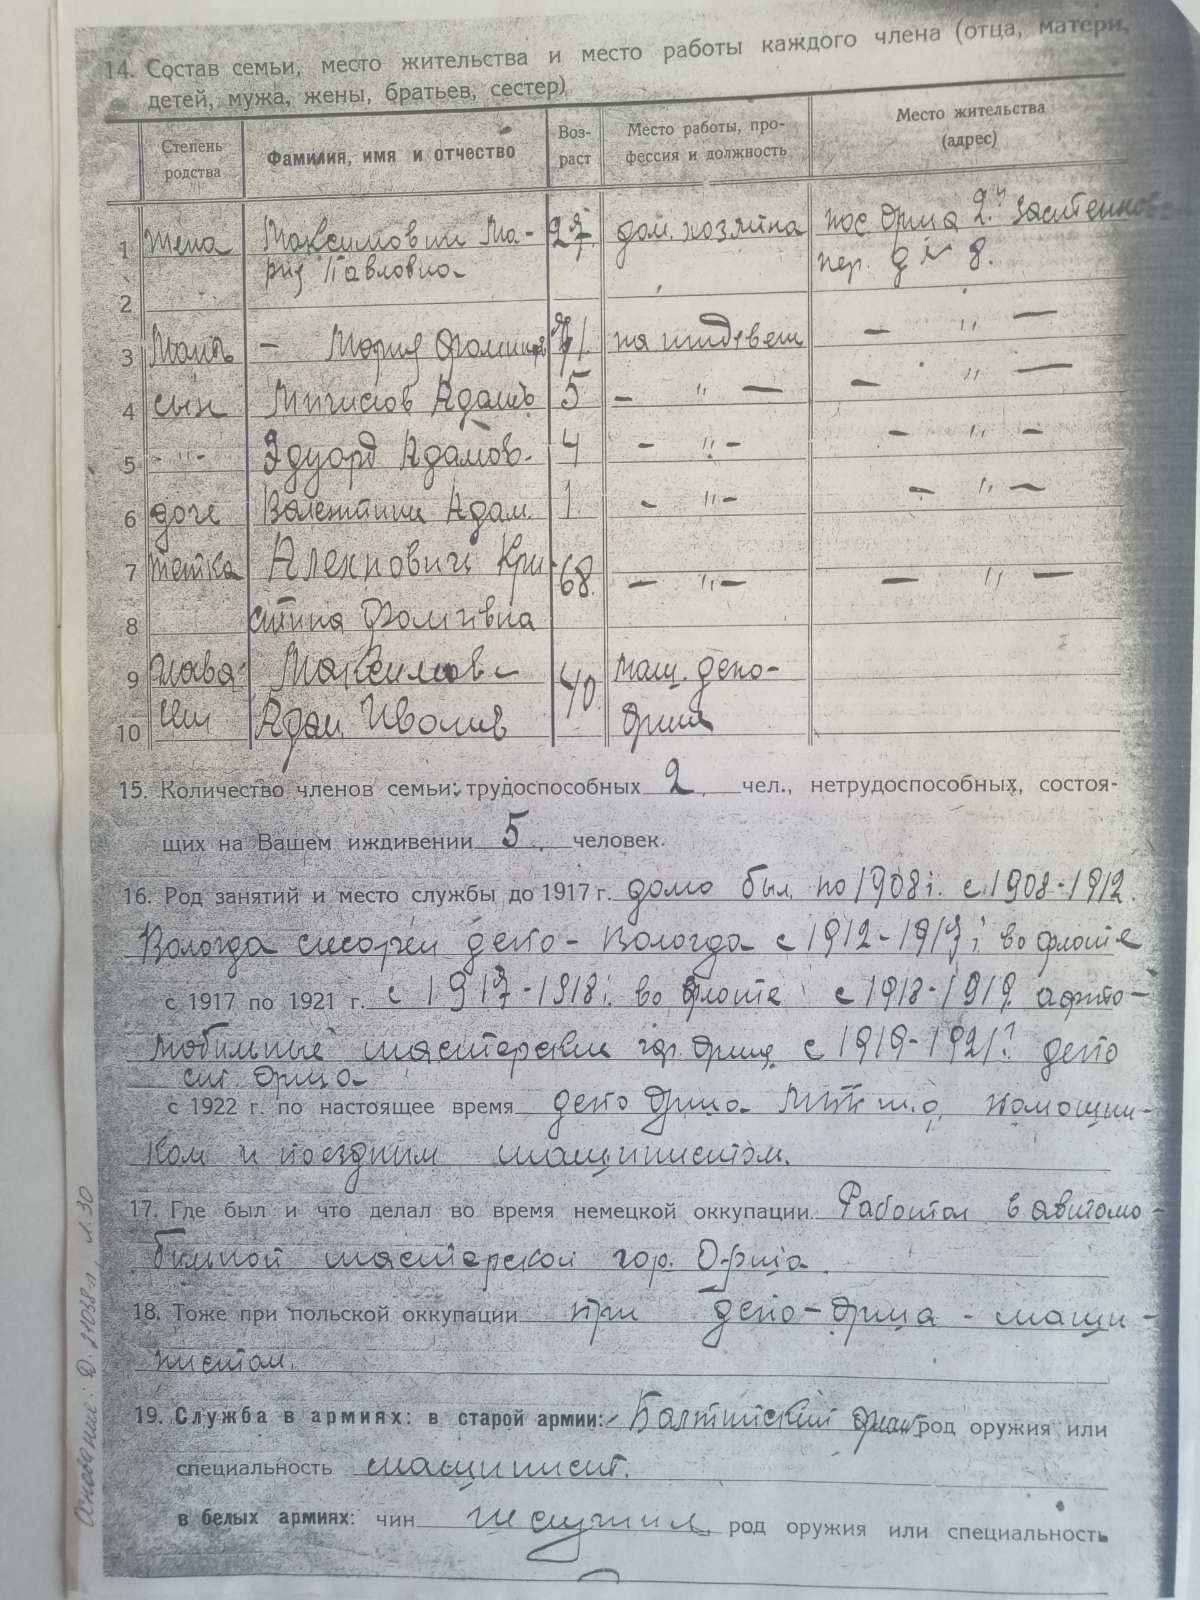 14. Состав семьи, место жительства и место работы каждого члена (отца, матери,
детей, мужа, жены, братьев, сестер)
Степень родства
Фамилия, имя и отчество
Воз-раст
Место работы, про-фессия и должность
Место жительства (адрес)
1 жена Максимович Ма- 27. дом. хозяйка пос Орша 2.й
рия Павловна пер. д № 8.
2
3 Мать — Мария 71. на иждевен — " —
4 сын Адамъ 5 — " — — " —
5 - " - Эдуард Адамов. 4 - " - - " -
6 доче Валентина Адам. 1. - " - - " -
7 тетка Алехнович Кри- 68. — " — — " —
8 стина Фомивна
9 Максимов- 40. маш. депо-
10 Адам Орша
15. Количество членов семьи: трудоспособных 2, чел., нетрудоспособных, состоя-
щих на Вашем иждивении 5, человек.
16. Род занятий и место службы до 1917 г. дома был по 1908 г. с 1908-1912.
Вологда депо - Вологда с 1912-1917 г во флоте
с 1917 по 1921 г. с 1917-1918 г. во флоте с 1918-1919. афто-
мобильные мастерские гор. Орша с 1919-1921 г. депо
ст. Орша
с 1922 г. по настоящее время депо Орша помощни-
ком и поездным машинистом.
17. Где был и что делал во время немецкой оккупации Работал в автомо-
бильной мастерской гор. Орша.
18. Тоже при польской оккупации при депо-Орша - маши-
нистом.
19. Служба в армиях: в старой армии: Балтийский флот род оружия или
специальность машинист.
в белых армиях: чин не служил, род оружия или специальность
Основание: Д. 21038п, л. 30